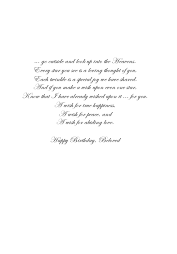 ... go outside and look up into the Heavens.
Every star you see is a loving thought of you.
Each twinkle is a special joy we have shared.
And if you make a wish upon even one star,
Know that I have already wished upon it ... for you.
A wish for true happiness,
A wish for peace, and
A wish for abiding love.
Happy Birthday, Beloved